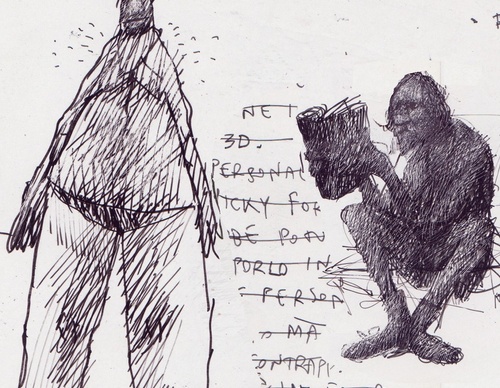 NET
3D.
PERSONAL
ICKY FOR
DE PON
PORLO IN
PERSON
MA
ONTRAPI.